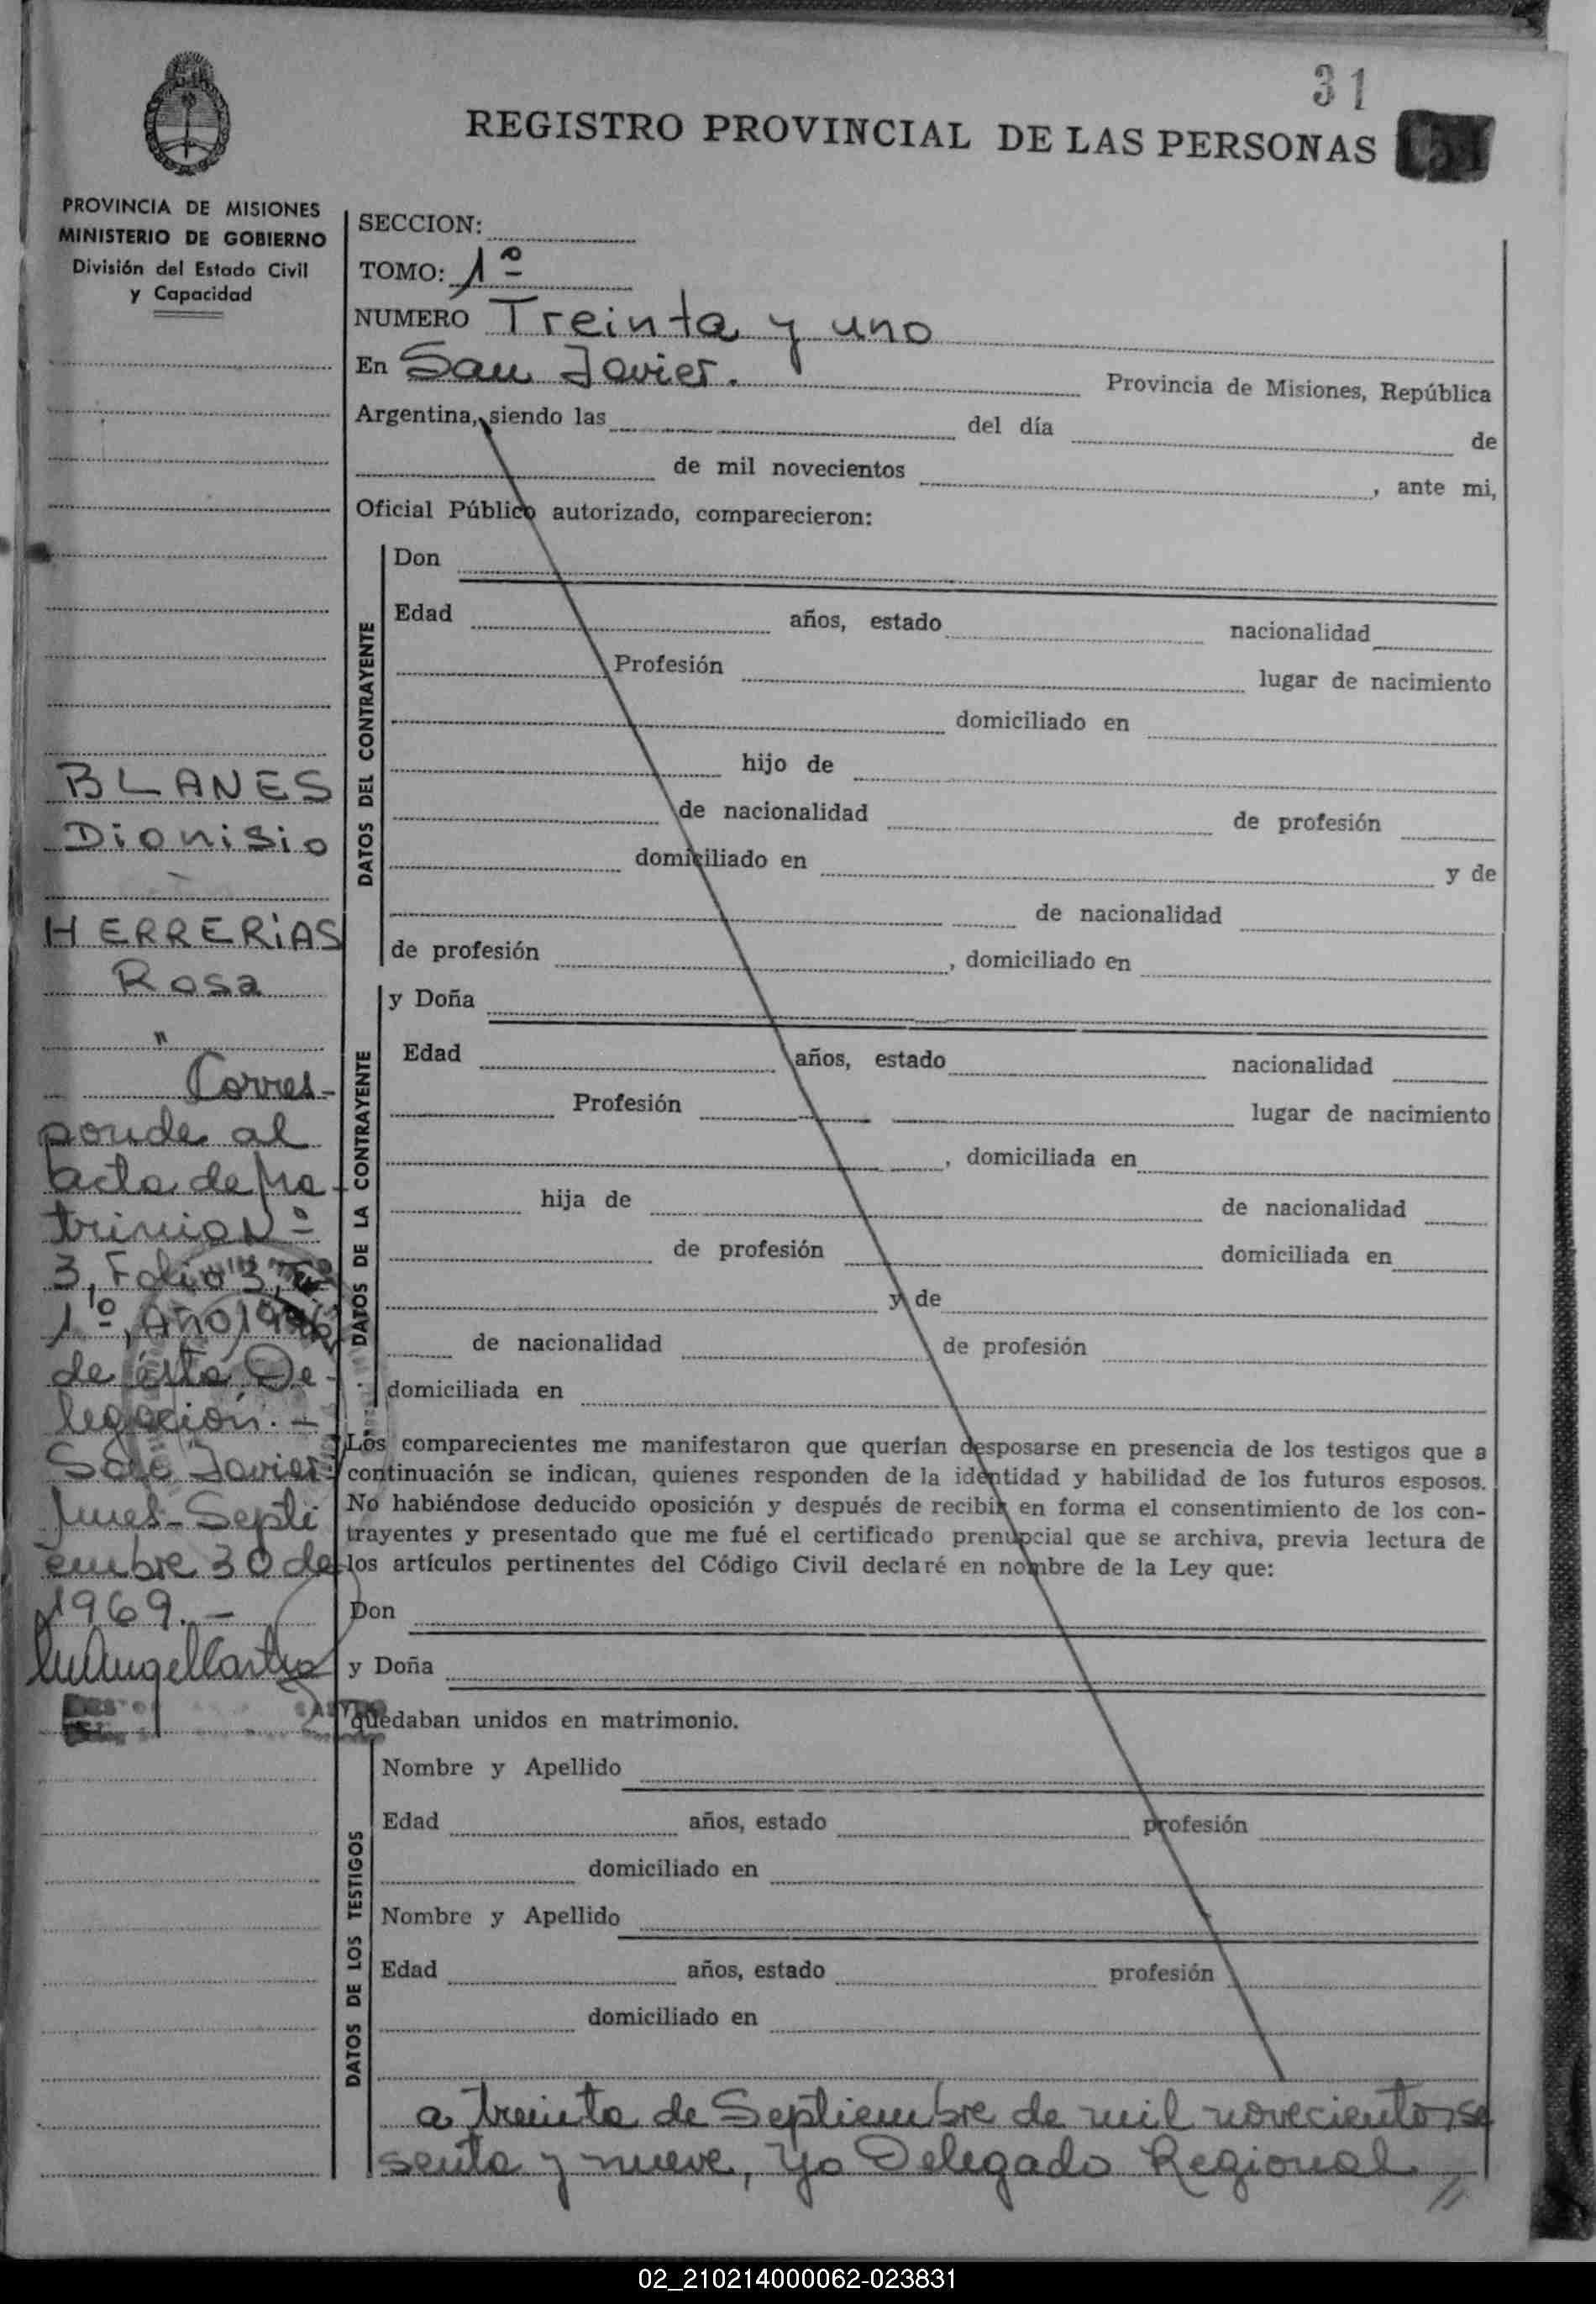 31
REGISTRO PROVINCIAL DE LAS PERSONAS
PROVINCIA DE MISIONES
MINISTERIO DE GOBIERNO
División del Estado Civil
y Capacidad
SECCION:
TOMO: 1º
NUMERO Treinta y uno
En San Javier. Provincia de Misiones, República
Argentina, siendo las del día de
de mil novecientos , ante mi,
Oficial Público autorizado, comparecieron:
DATOS DEL CONTRAYENTE
Don
Edad años, estado nacionalidad
Profesión lugar de nacimiento
domiciliado en
hijo de
de nacionalidad de profesión
domiciliado en y de
de nacionalidad
de profesión , domiciliado en
DATOS DE LA CONTRAYENTE
y Doña
Edad años, estado nacionalidad
Profesión lugar de nacimiento
, domiciliada en
hija de de nacionalidad
de profesión domiciliada en
y de
de nacionalidad de profesión
domiciliada en
Los comparecientes me manifestaron que querían desposarse en presencia de los testigos que a
continuación se indican, quienes responden de la identidad y habilidad de los futuros esposos.
No habiéndose deducido oposición y después de recibir en forma el consentimiento de los con-
trayentes y presentado que me fué el certificado prenupcial que se archiva, previa lectura de
los artículos pertinentes del Código Civil declaré en nombre de la Ley que:
Don
y Doña
quedaban unidos en matrimonio.
DATOS DE LOS TESTIGOS
Nombre y Apellido
Edad años, estado profesión
domiciliado en
Nombre y Apellido
Edad años, estado profesión
domiciliado en
a treinta de Septiembre de mil novecientos se
senta y nueve, Yo Delegado Regional
BLANES
Dionisio
HERRERiAS
Rosa
"
Corres-
ponde al
acta de Ma-
trimio Nº
3, Folio 3, Tº
1º, Año
de ésta De-
legación.-
San Javier
Mnes-Septi
embre 30 de
1969.-
02_210214000062-023831